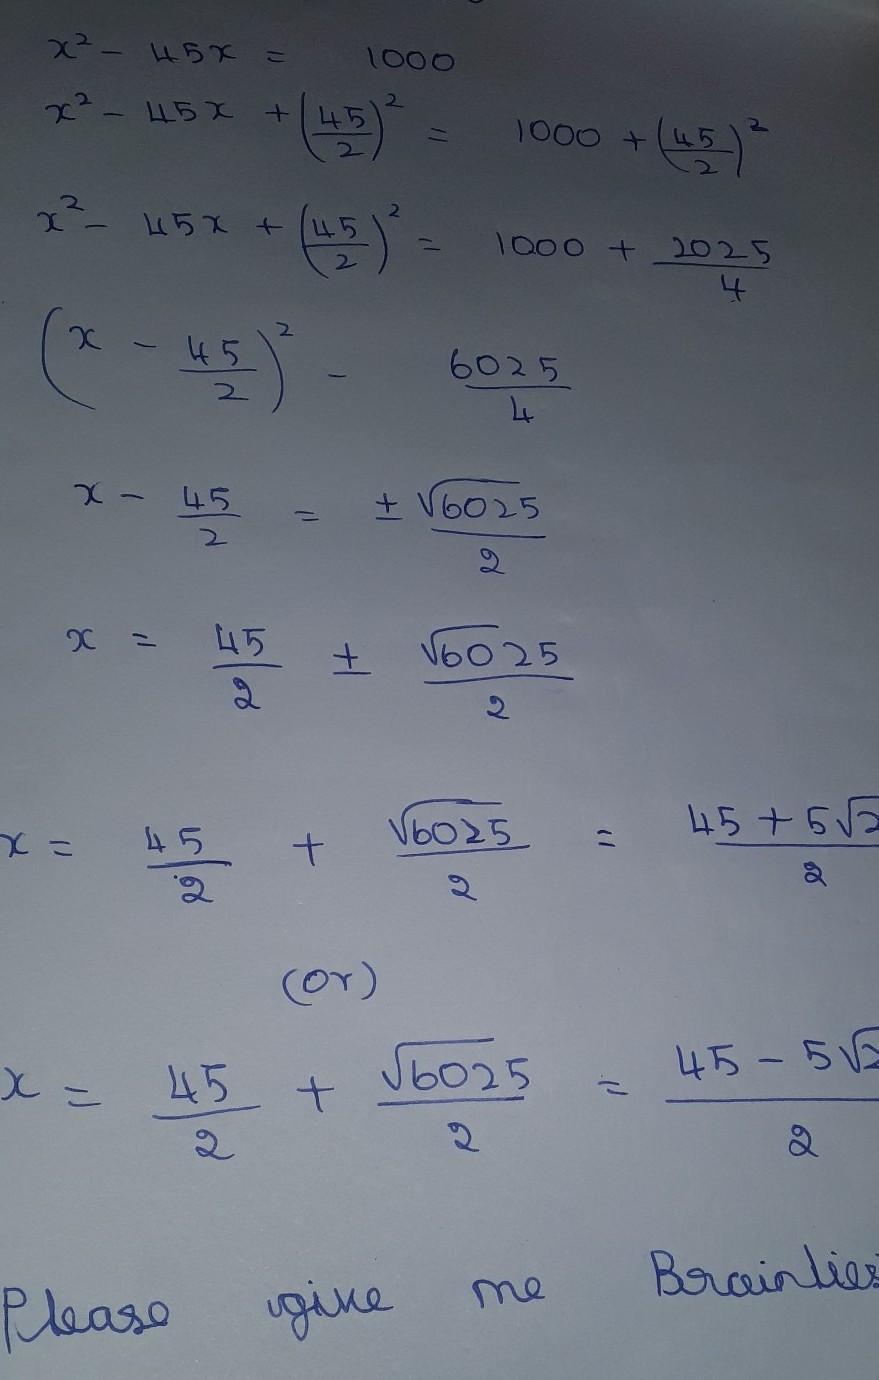 x² - 45x = 1000
x² - 45x + (45/2)² = 1000 + (45/2)²
x² - 45x + (45/2)² = 1000 + 2025/4
(x - 45/2)² - 6025/4
x - 45/2 = ± √6025/2
x = 45/2 ± √6025/2
x = 45/2 + √6025/2 = 45 + 5√2/2
(or)
x = 45/2 + √6025/2 = 45 - 5√2/2
Please give me Brainlies